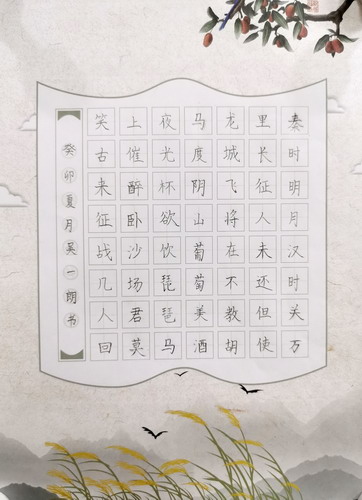 秦时明月汉时关万
里长征人未还但使
龙城飞将在不教胡
马度阴山葡萄美酒
夜光杯欲饮琵琶马
上催醉卧沙场君莫
笑古来征战几人回
癸卯夏月吴一朗书